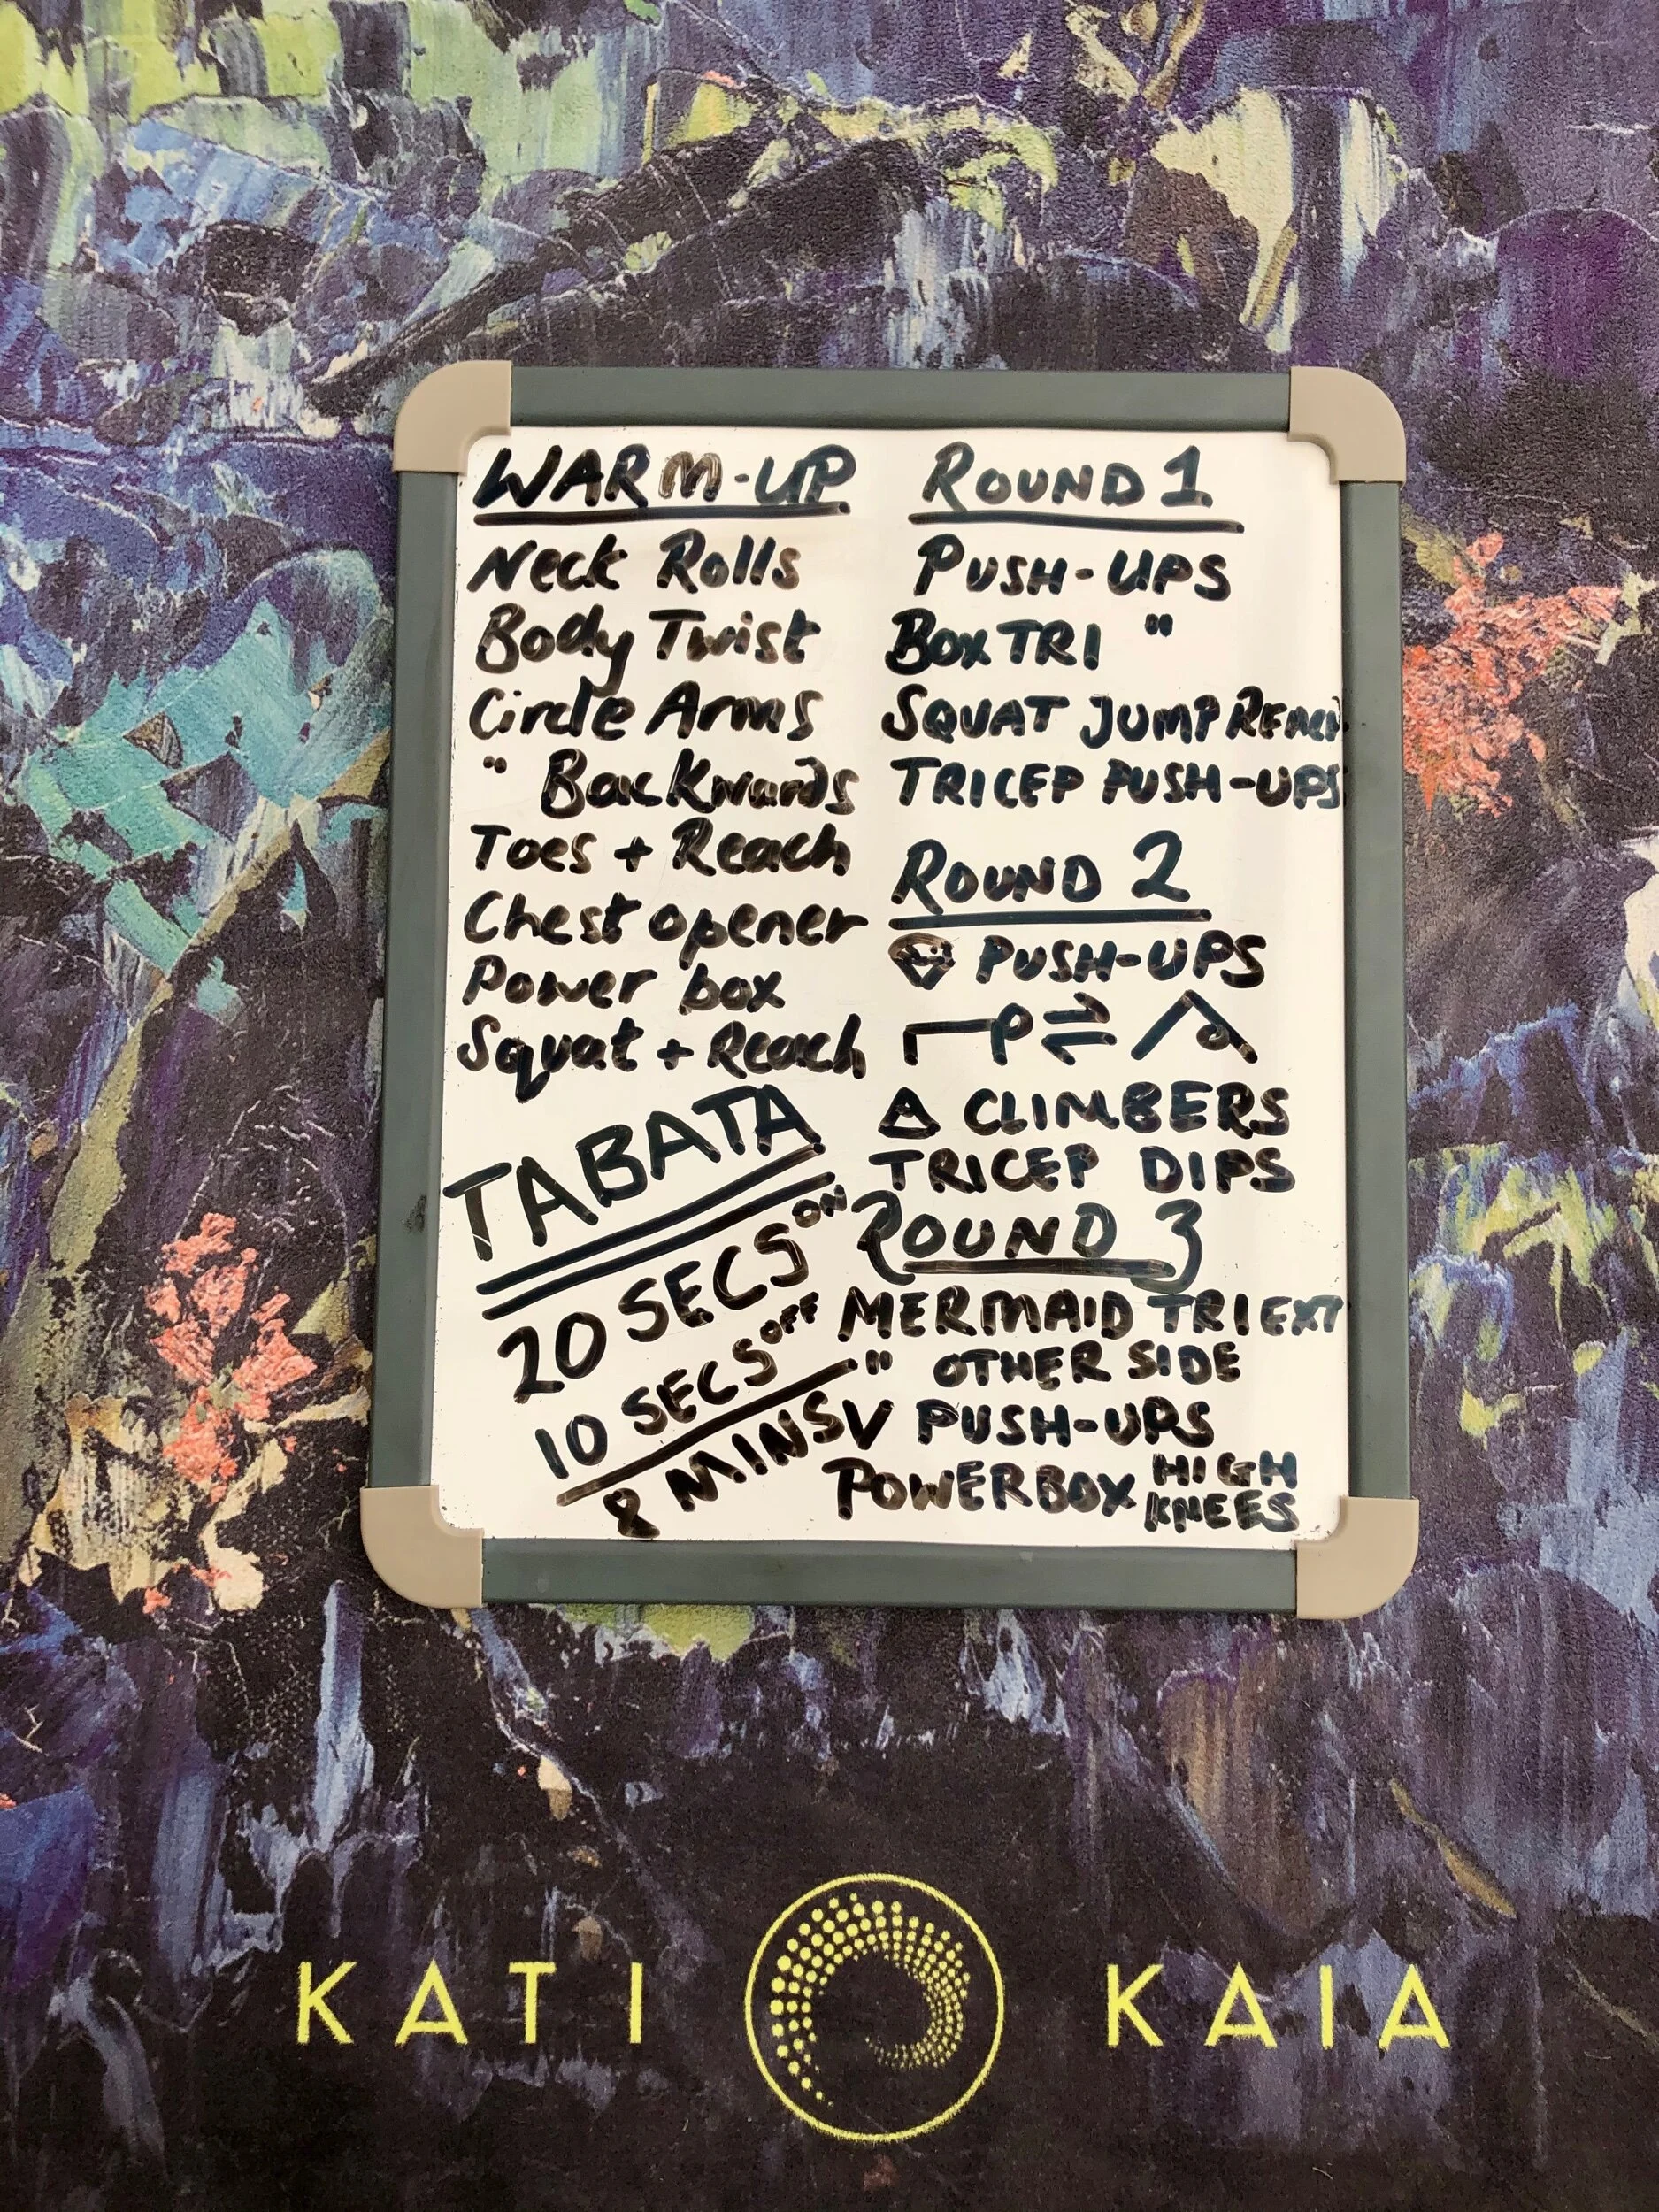 WARM-UP
Neck Rolls
Body Twist
Circle Arms
" Backwards
Toes + Reach
Chest opener
Power box
Squat + Reach
TABATA
20 SECS ON
10 SECS OFF
8 MINS
ROUND 1
PUSH-UPS
BOX TRI "
SQUAT JUMP REACH
TRICEP PUSH-UPS
ROUND 2
PUSH-UPS
⇌
Δ CLIMBERS
TRICEP DIPS
ROUND 3
MERMAID TRI EXT
" OTHER SIDE
V PUSH-UPS
POWERBOX HIGH KNEES
KATI KAIA